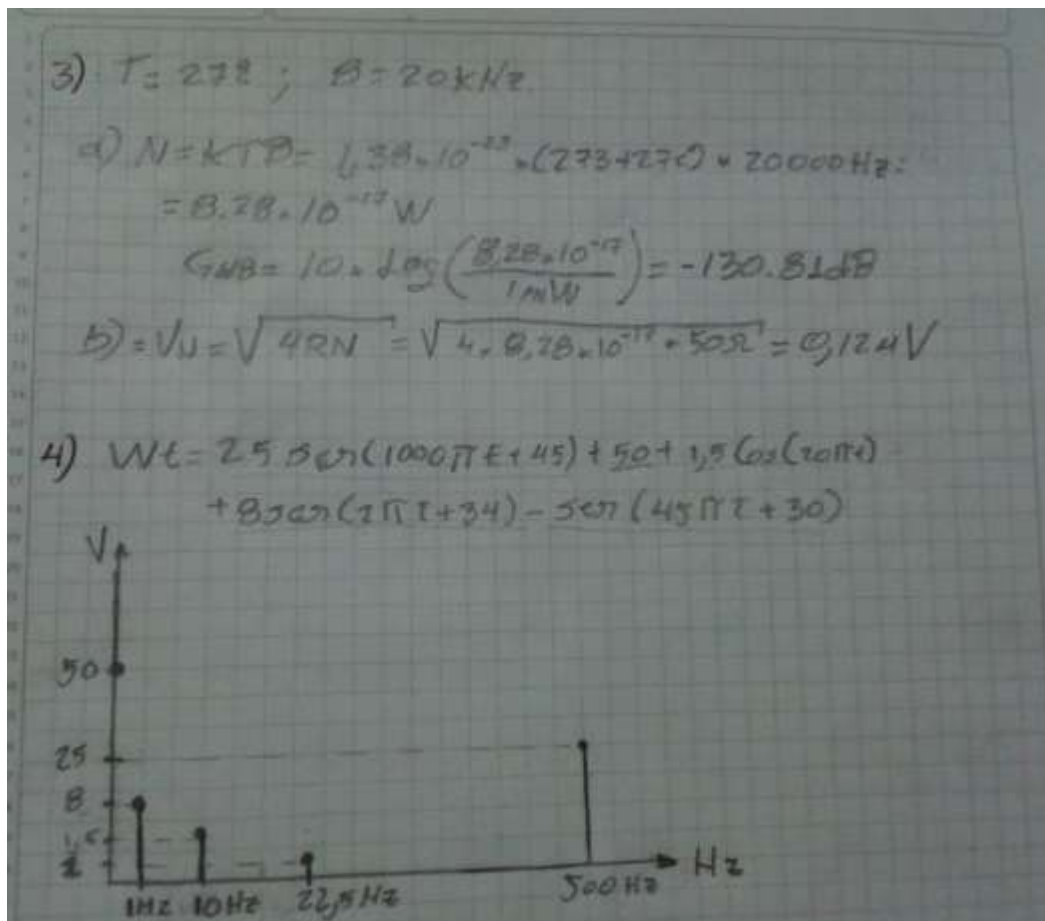 3) T= 27º ; B= 20KHz.
a) N=KTB= 1,38*10⁻²³*(273+27º) * 20000Hz=
= 8.28*10⁻¹⁷ W
10*Log(8,28*10⁻¹⁷/1mW) = -130.81dB
b) = VN= √4RN = √4*8,28*10⁻¹⁷*50Ω = 0,12uV
4) Wt= 25 sen(1000πt+45)+50+1,5Cos(20πt)
+8sen(2πt+34)-sen(45πt+30)
V
50
25
8
1,5
1
Hz
1Hz 10Hz 22,5Hz 500Hz